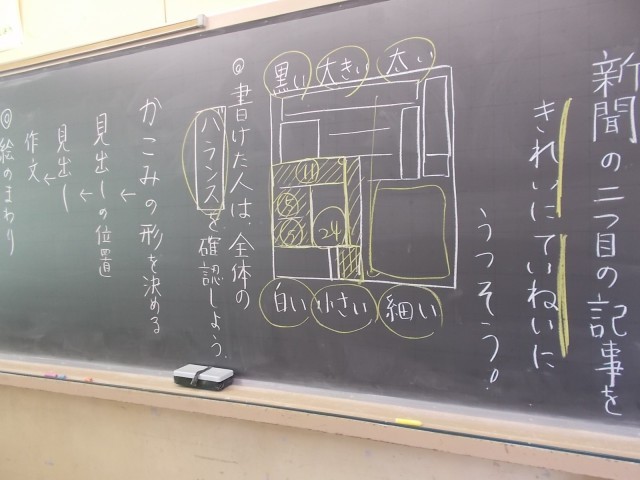 新聞の二つ目の記事を
きれいにていねいに
うつそう!
黒い 大きい 太い
⑪
⑤
⑤
24
白い 小さい 細い
◎書けた人は、全体の
バランスを確認しよう。
かこみの形を決める
↓
見出しの位置
↓
見出し
↓
作文
◎絵のまわり